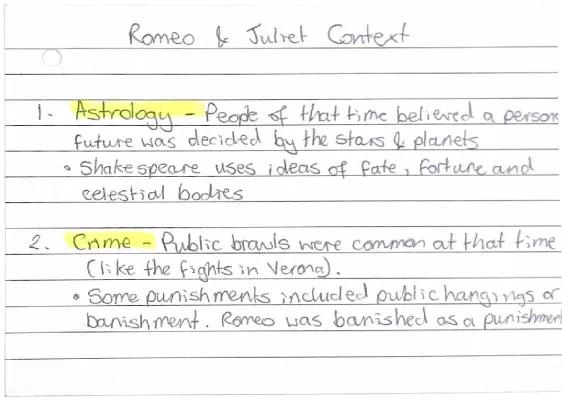 Romeo & Juliet Context
1. Astrology - People of that time believed a persons
future was decided by the stars & planets
• Shakespeare uses ideas of fate, fortune and
celestial bodies
2. Crime - Public brawls were common at that time
(like the fights in Verona).
• Some punishments included public hangings or
banishment. Romeo was banished as a punishment